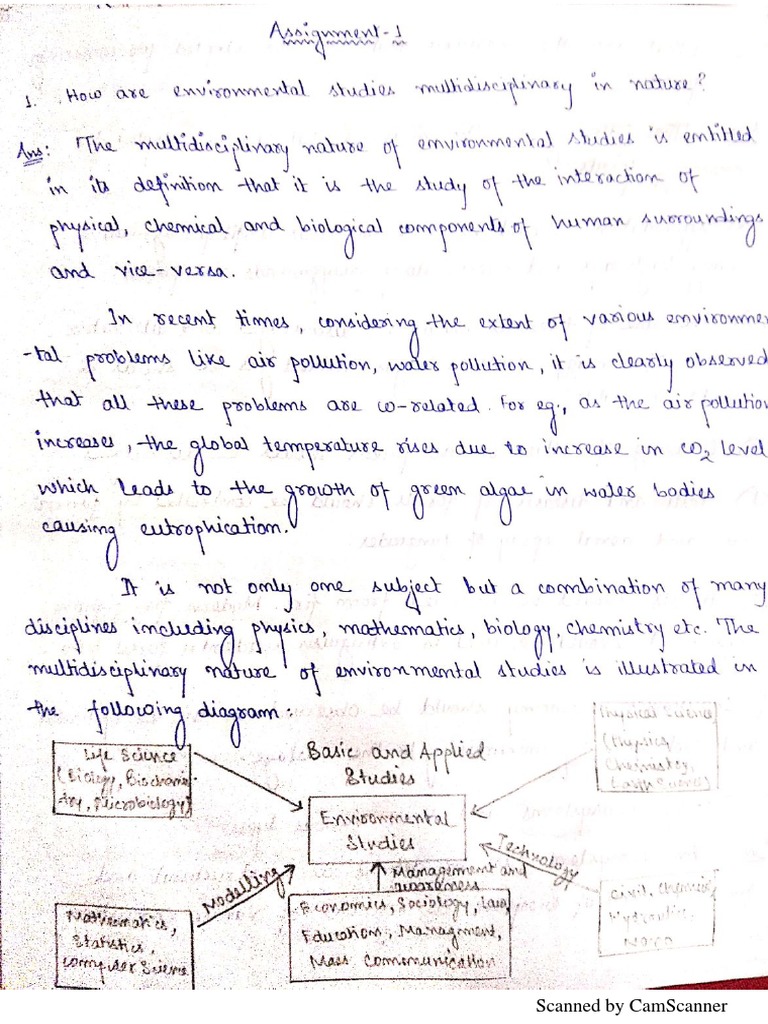 Assignment-1
1. How are environmental studies multidisciplinary in nature?
Ans: The multidisciplinary nature of environmental studies is entitled
in its definition that it is the study of the interaction of
physical, chemical and biological components of human surroundings
and vice-versa.
In recent times, considering the extent of various environme
-tal problems like air pollution, water pollution, it is clearly observed
that all these problems are co-related. For eg., as the air pollution
increases, the global temperature rises due to increase in CO2 level
which leads to the growth of green algae in water bodies
causing eutrophication.
It is not only one subject but a combination of many
disciplines including physics, mathematics, biology, chemistry etc. The
multidisciplinary nature of environmental studies is illustrated in
the following diagram:
Life Science
(Biology, Biochemis-
try, Microbiology)
Basic and Applied
Studies
Physical Science
(Physics,
Chemistry,
Environmental
Studies
Modelling
Management and
awareness
Technology
Mathematics,
Statistics,
Computer Science
Economics, Sociology, Law,
Education, Managment,
Mass Communication
Civil, Chemical
Hydraulic,
Nano
Scanned by CamScanner